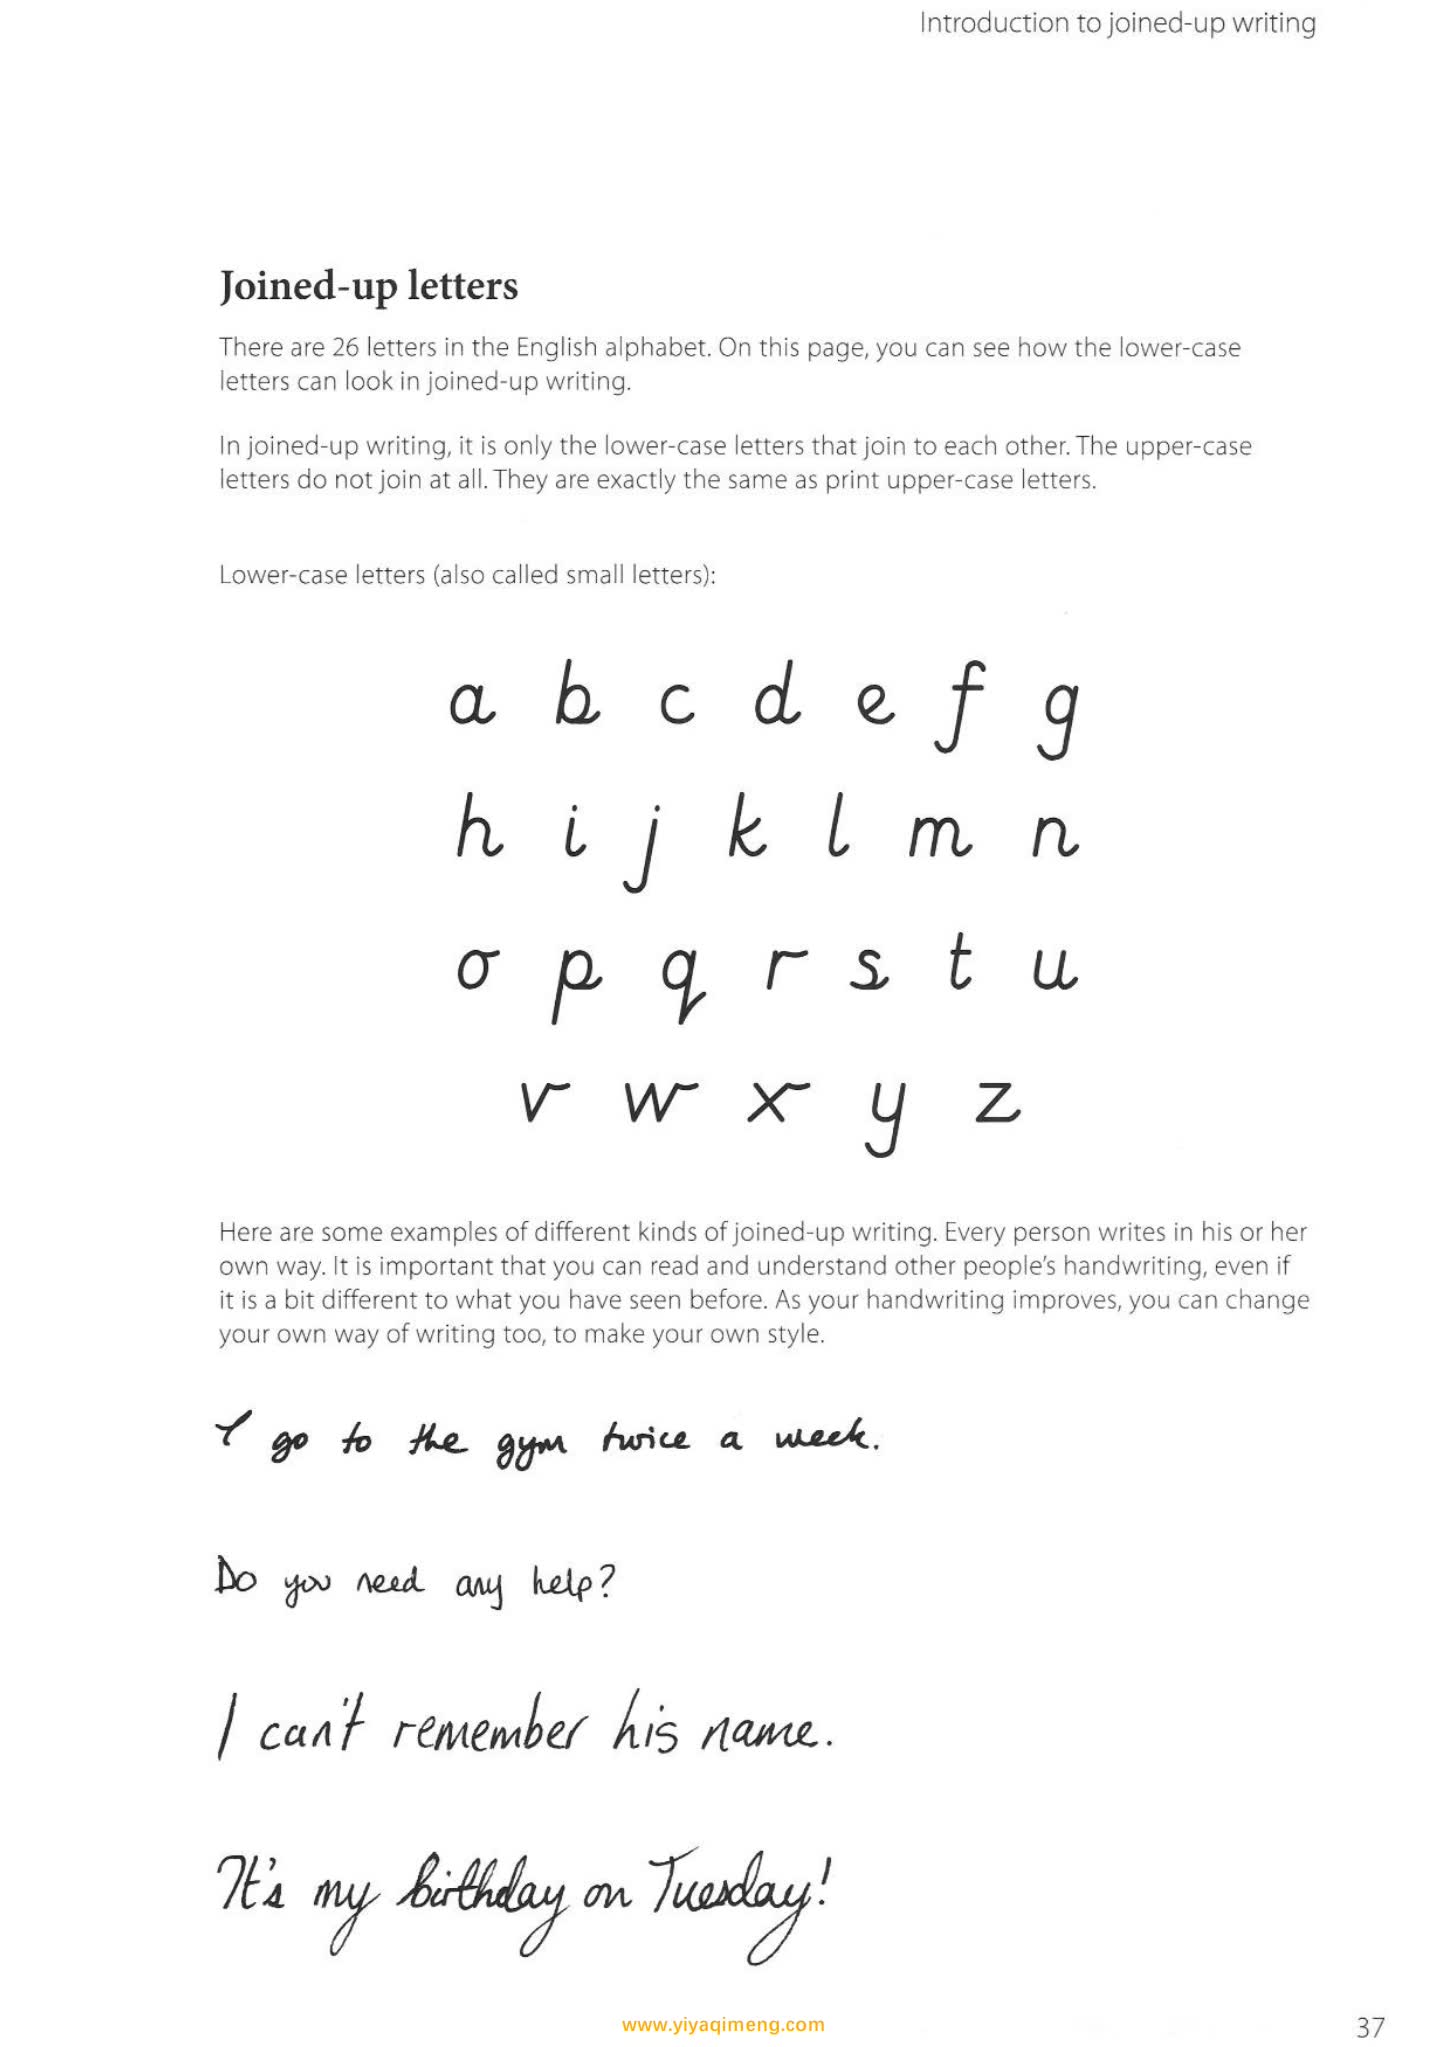 Introduction to joined-up writing
Joined-up letters
There are 26 letters in the English alphabet. On this page, you can see how the lower-case
letters can look in joined-up writing.
In joined-up writing, it is only the lower-case letters that join to each other. The upper-case
letters do not join at all. They are exactly the same as print upper-case letters.
Lower-case letters (also called small letters):
a b c d e f g
h i j k l m n
o p q r s t u
v w x y z
Here are some examples of different kinds of joined-up writing. Every person writes in his or her
own way. It is important that you can read and understand other people's handwriting, even if
it is a bit different to what you have seen before. As your handwriting improves, you can change
your own way of writing too, to make your own style.
I go to the gym twice a week.
Do you need any help?
I can't remember his name.
It's my birthday on Tuesday!
www.yiyaqimeng.com
37